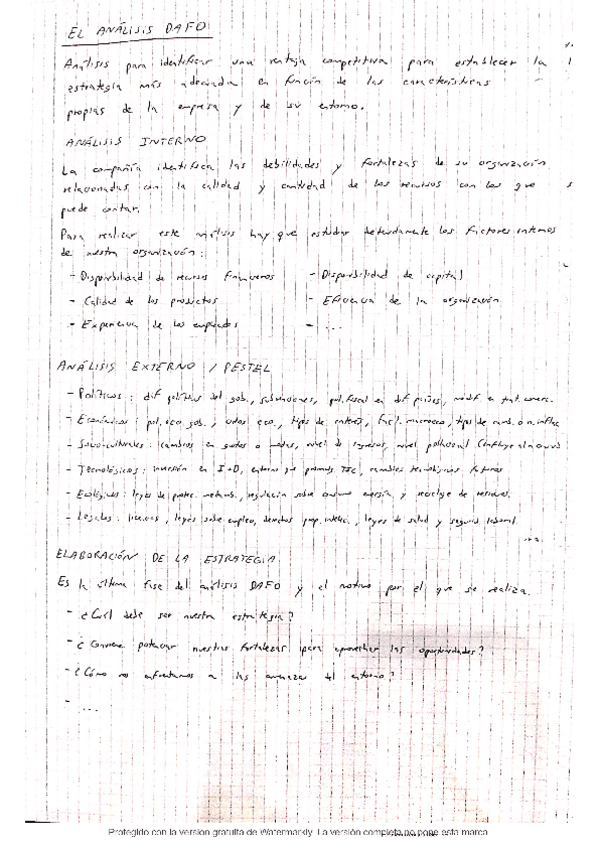 EL ANÁLISIS DAFO
Análisis para identificar una ventaja competitiva para establecer la
estrategia más adecuada en función de las características
propias de la empresa y de su entorno.
ANÁLISIS INTERNO
La compañía identifica las debilidades y fortalezas de su organización
relacionadas con la calidad y cantidad de los recursos con los que
puede contar.
Para realizar este análisis hay que estudiar detenidamente los factores internos
de nuestra organización:
- Disponibilidad de recursos financieros
- Disponibilidad de capital
- Calidad de los productos
- Eficiencia de la organización
- Experiencia de los empleados
- ...
ANÁLISIS EXTERNO / PESTEL
- Políticos: dif políticas del gob., subvenciones, pol. fiscal en dif países, modif en trat. comerc.
- Económicos: pol. eco. gob., ciclos eco., tipos de interés, fact. macroeco, tipos de camb. o n. inflac
- Socio-culturales: cambios en gustos o modas, nivel de ingresos, nivel poblacional
- Tecnológicos: inversión en I+D, entorno que promueve TIC, cambios tecnológicos futuros
- Ecológicos: leyes de protec. medioamb., regulación sobre consumo energía y reciclaje de residuos.
- Legales: licencias, leyes sobre empleo, derechos prop. intelec., leyes de salud y seguridad laboral.
...
ELABORACIÓN DE LA ESTRATEGIA
Es la última fase del análisis DAFO y el motivo por el que se realiza.
- ¿Cuál debe ser nuestra estrategia?
- ¿Conviene potenciar nuestras fortalezas para aprovechar las oportunidades?
- ¿Cómo nos enfrentamos a las amenazas del entorno?
- ....
Protegido con la versión gratuita de Watermarkly. La versión completa no pone esta marca